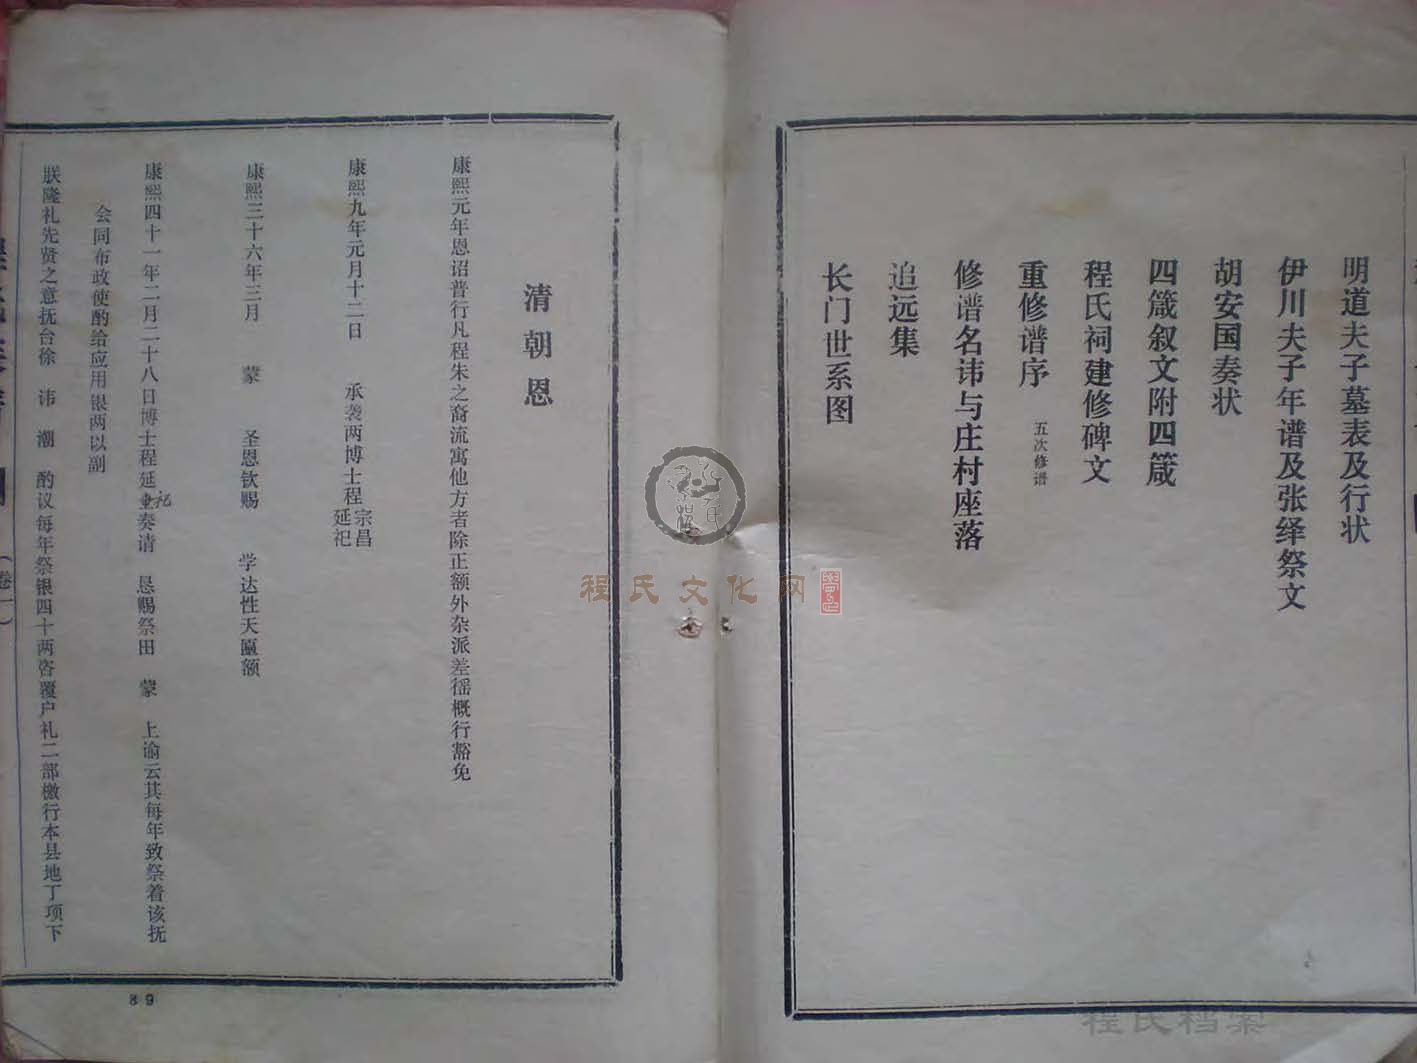 明道夫子墓表及行状
伊川夫子年谱及张绎祭文
胡安国奏状
四箴叙文附四箴
程氏祠建修碑文
重修谱序 五次修谱
修谱名讳与庄村座落
追远集
长门世系图
清朝恩
康熙元年恩诏普行凡程朱之裔流寓他方者除正额外杂派差徭概行豁免
康熙九年元月十二日 承袭两博士程宗昌延祀
康熙三十六年三月 蒙 圣恩钦赐 学达性天匾额
康熙四十一年二月二十八日博士程延祀奏请 恳赐祭田 蒙 上谕云其每年致祭着该抚
会同布政使酌给应用银两以副
朕隆礼先贤之意抚台徐 讳 潮 酌议每年祭银四十两咨覆户礼二部檄行本县地丁项下
(卷一)
89
程氏文化网
程氏档案